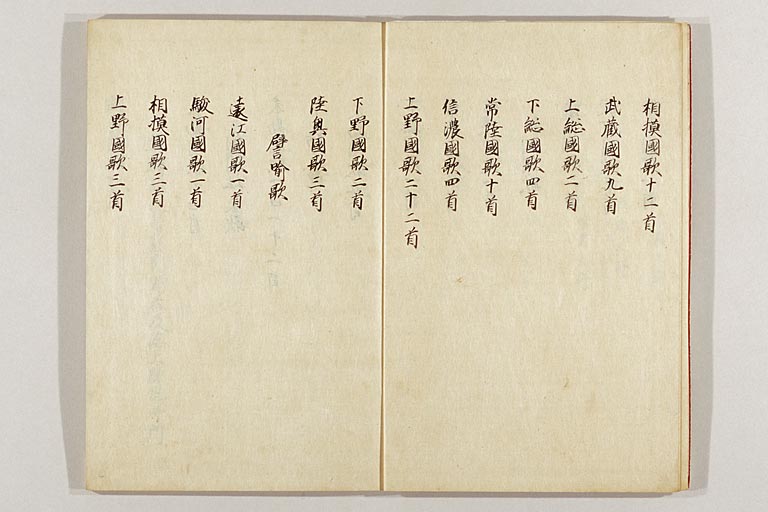 相摸國歌十二首
武藏國歌九首
上総國歌二首
下総國歌四首
常陸國歌十首
信濃國歌四首
上野國歌二十二首
下野國歌二首
陸奥國歌三首
譬喩歌
遠江國歌一首
駿河國歌一首
相摸國歌三首
上野國歌三首